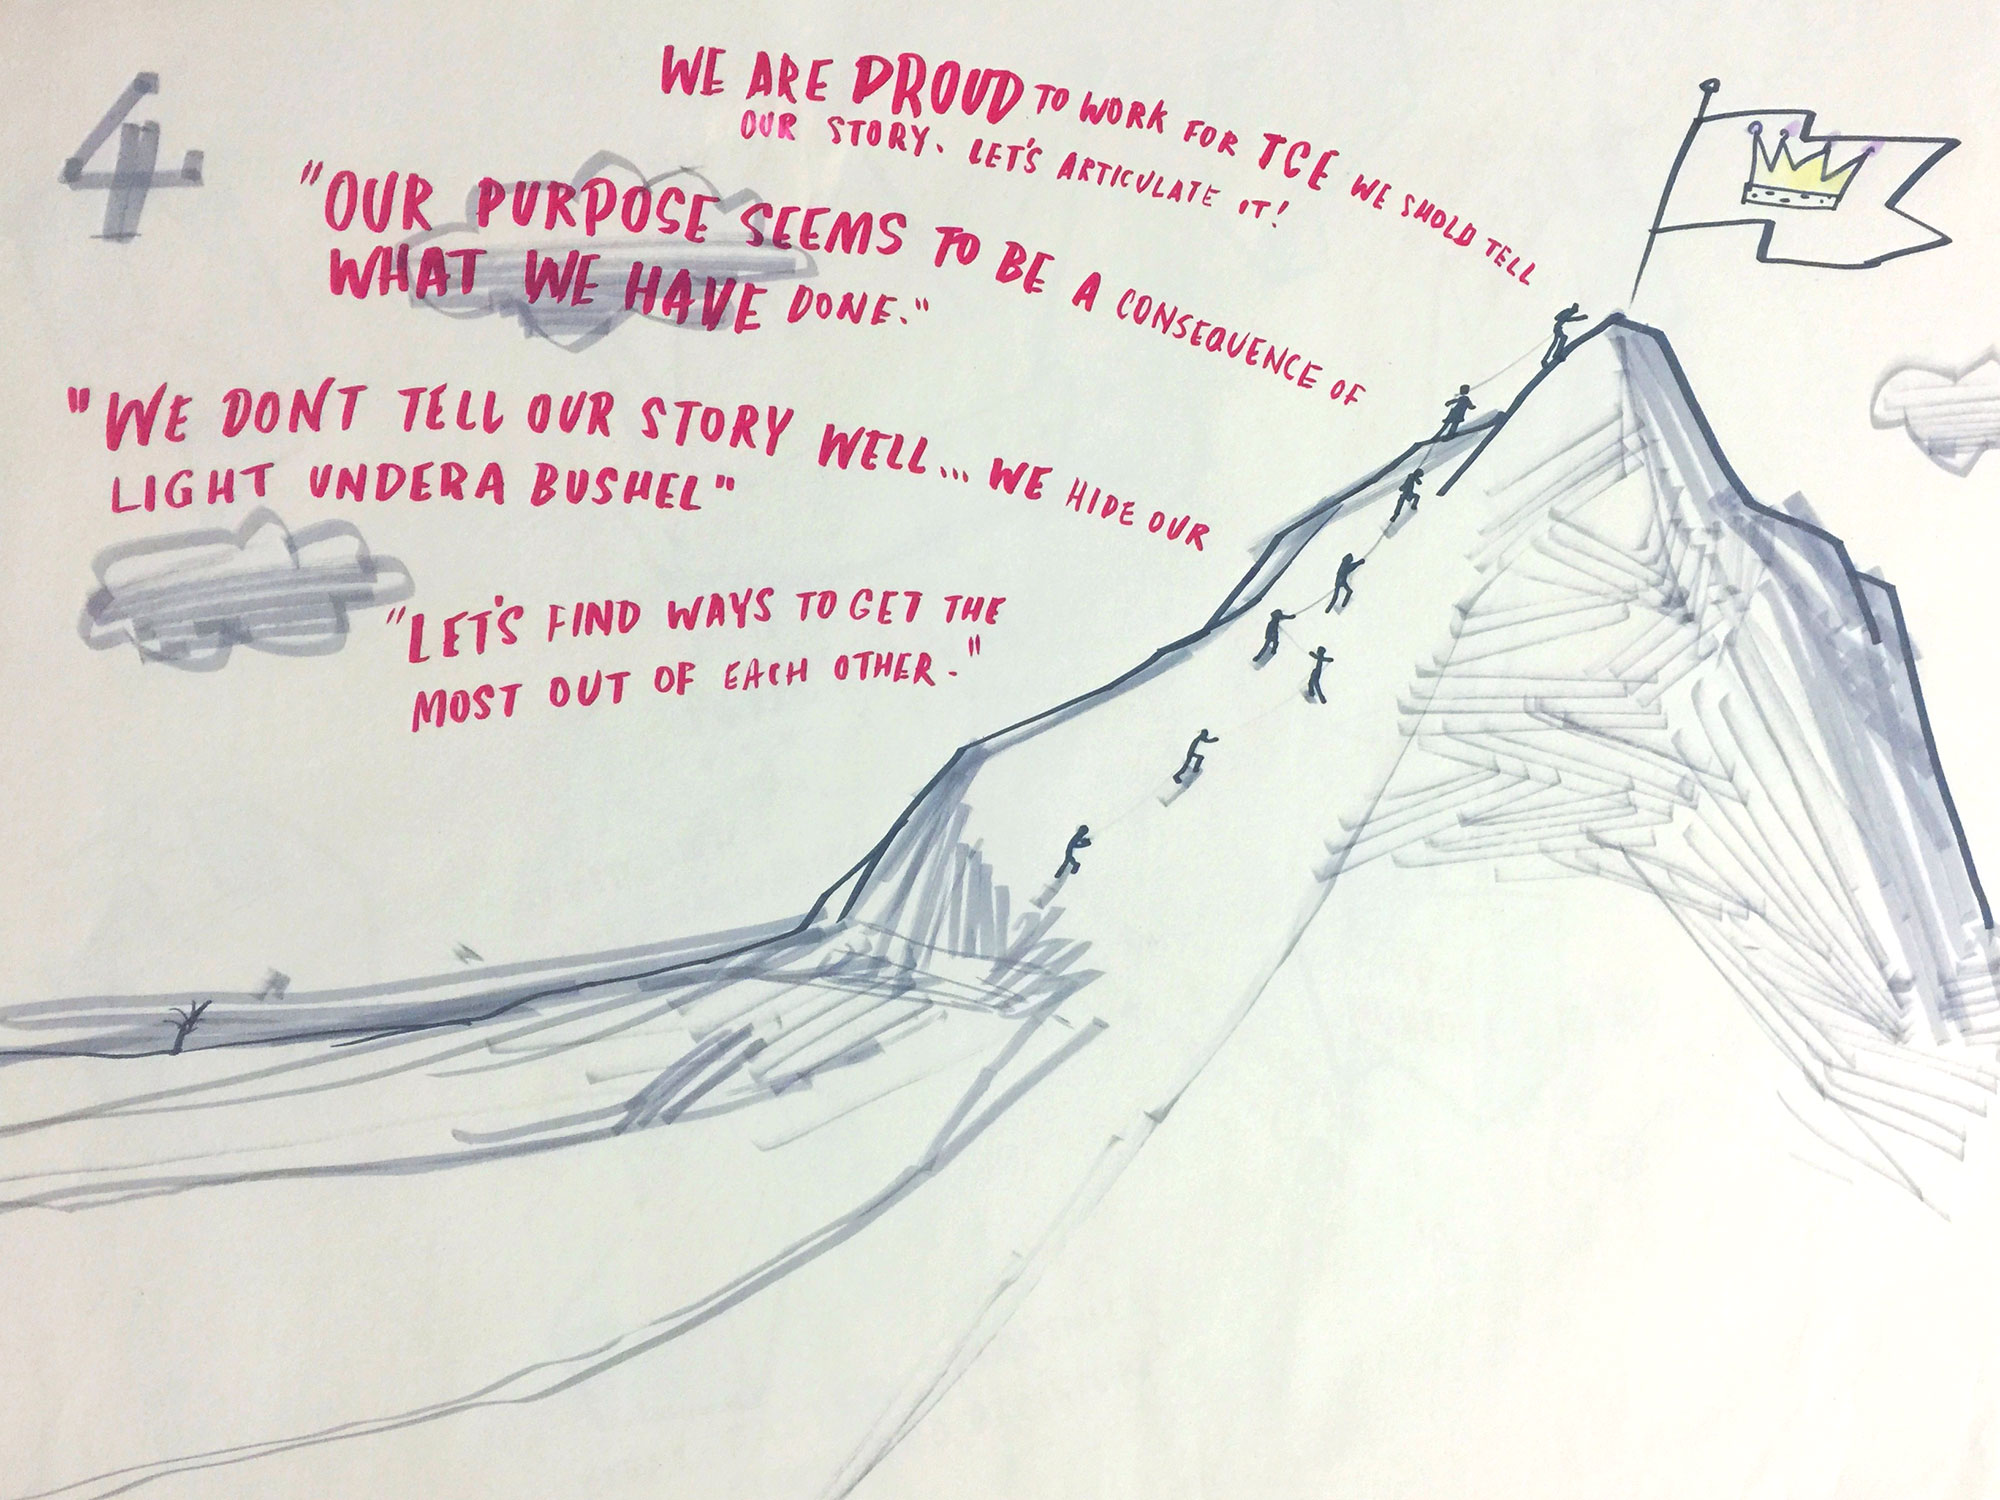 4
WE ARE PROUD TO WORK FOR TCE WE SHOLD TELL
OUR STORY. LET'S ARTICULATE IT!
"OUR PURPOSE SEEMS TO BE A CONSEQUENCE OF
WHAT WE HAVE DONE."
"WE DON'T TELL OUR STORY WELL... WE HIDE OUR
LIGHT UNDER A BUSHEL"
"LET'S FIND WAYS TO GET THE
MOST OUT OF EACH OTHER."